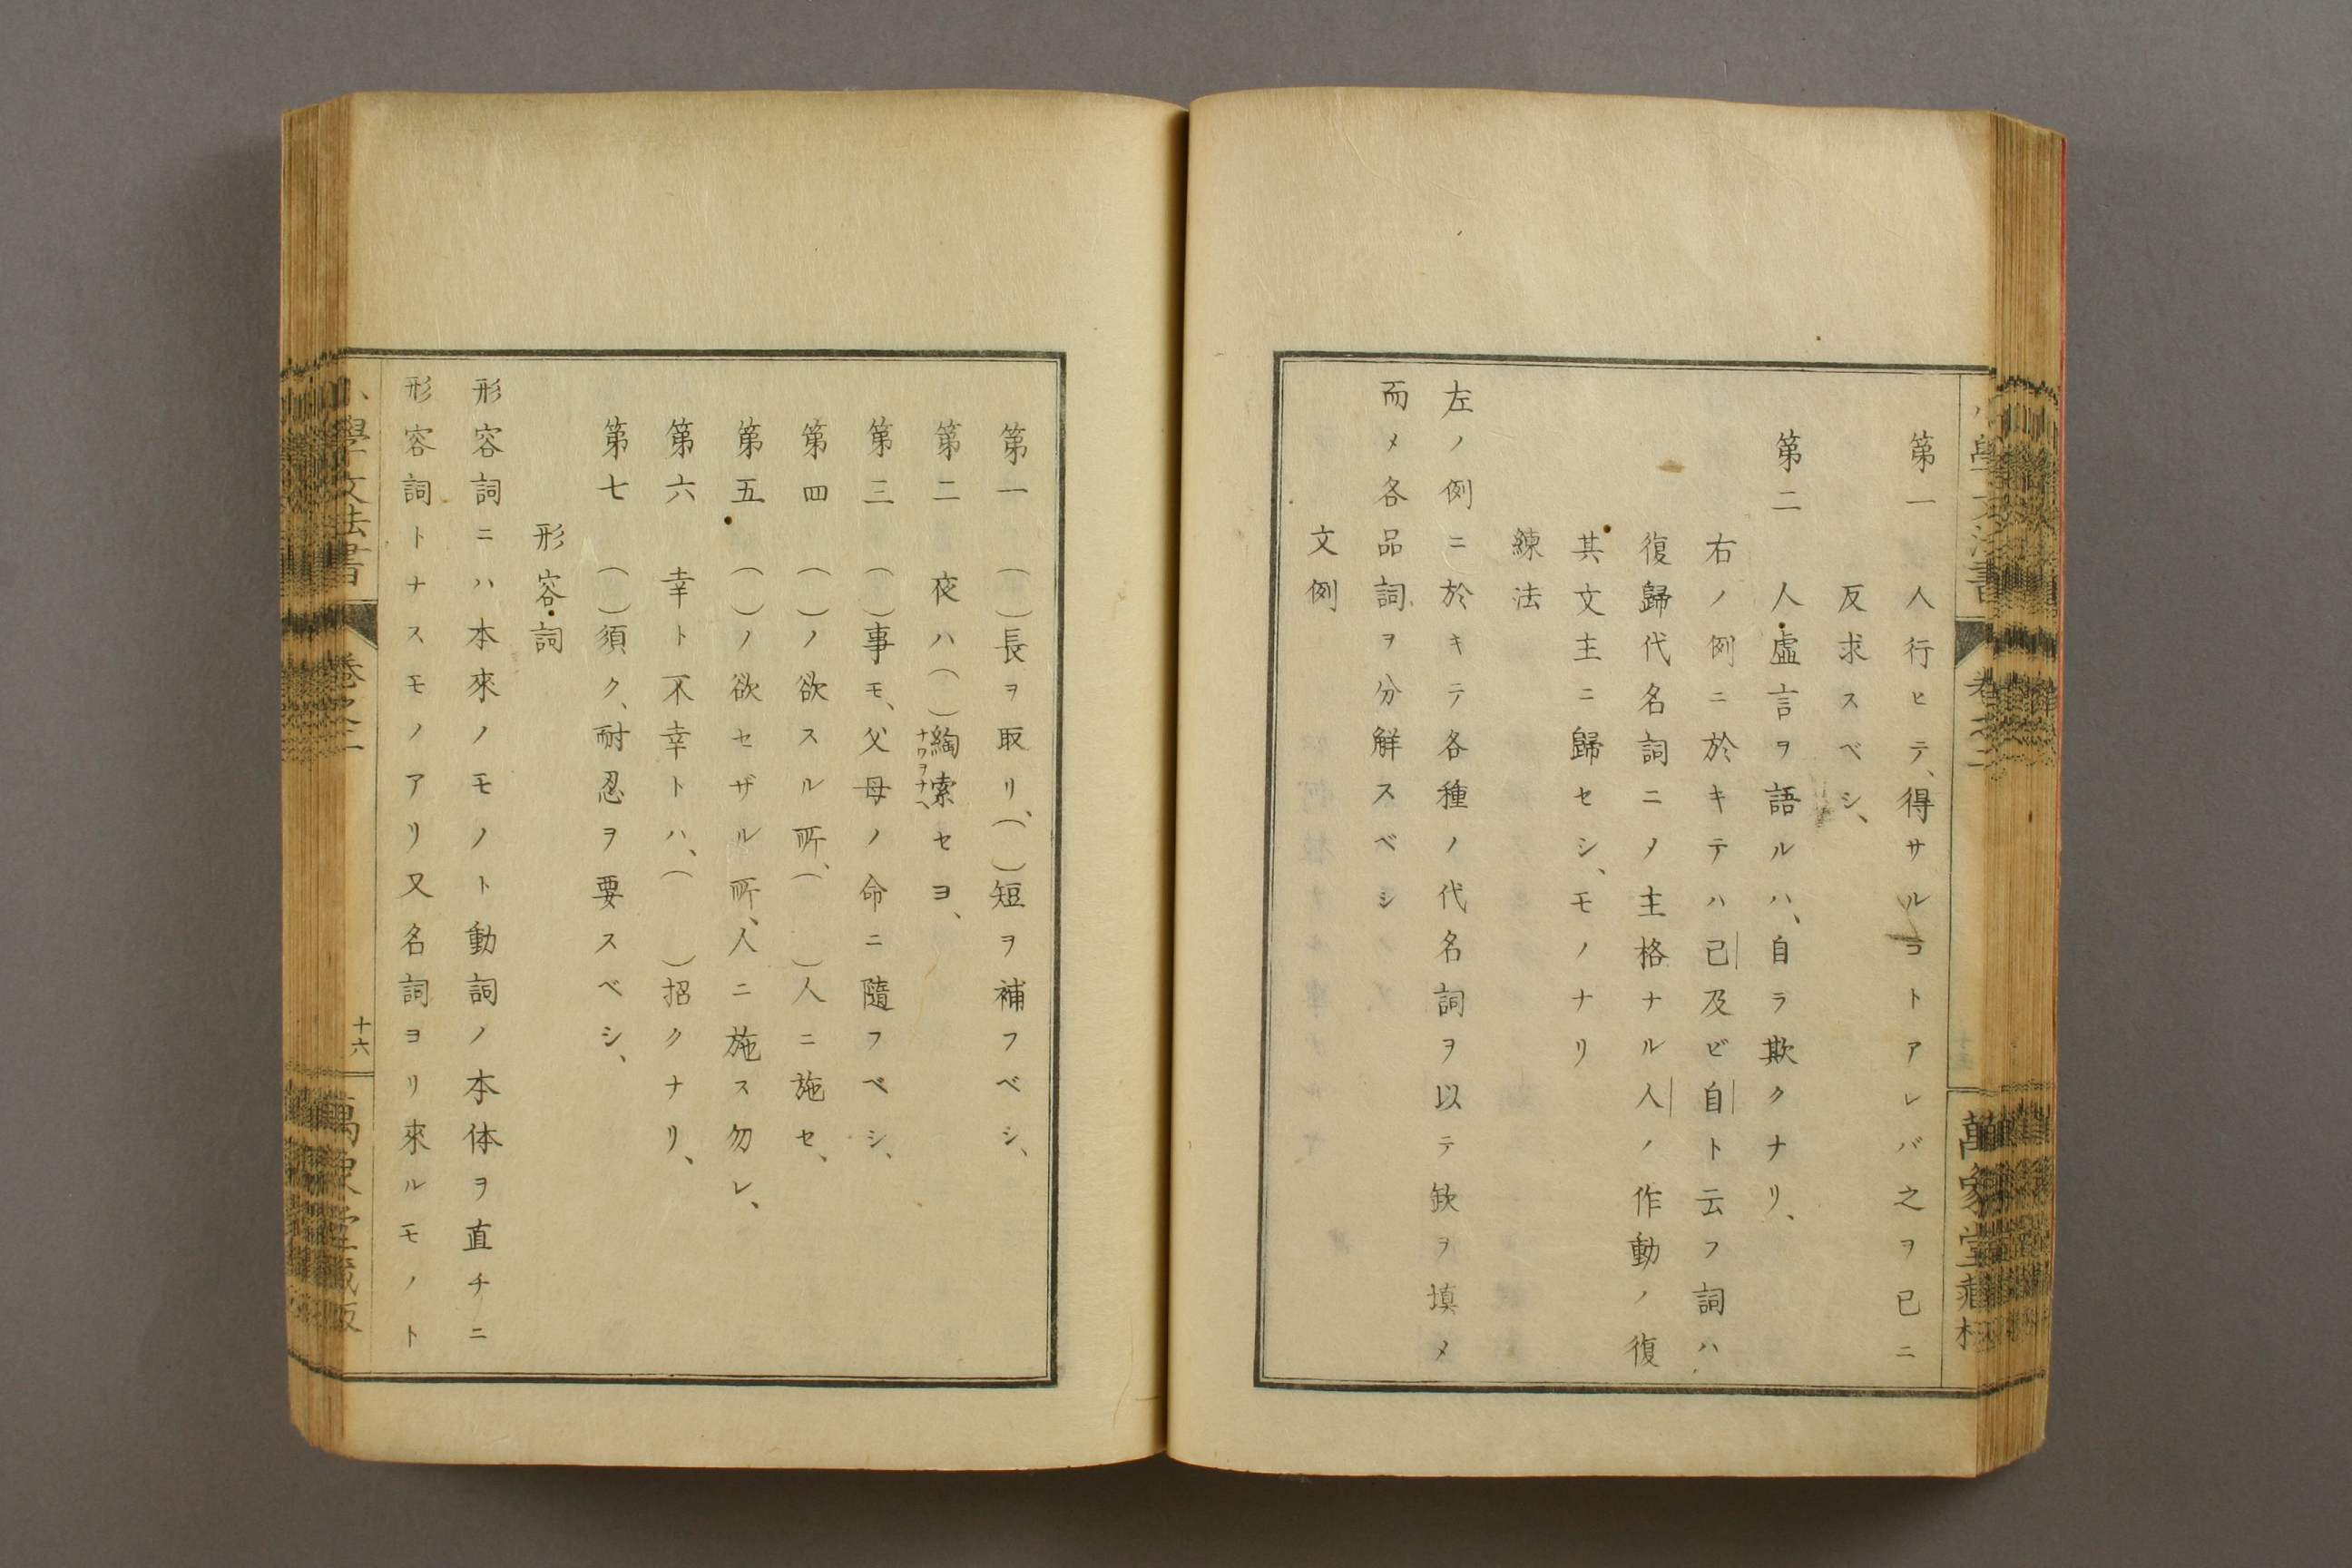 第一 人行ヒテ、得サルヿトアレバ之ヲ已ニ
反求スベシ、
第二 人虛言ヲ語ルハ、自ラ欺クナリ、
右ノ例ニ於キテハ已及ビ自ト云フ詞ハ
復歸代名詞ニメ主格ナル人ノ作動ノ復
其文主ニ歸セシ、モノナリ
練法
左ノ例ニ於キテ各種ノ代名詞ヲ以テ欽ヲ填メ
而メ各品詞ヲ分解スベシ
文例
第一 ( )長ヲ取リ、( )短ヲ補フベシ、
第二 夜ハ( )綯索セヨ、
ナワヲナヘ
第三 ( )事モ、父母ノ命ニ隨フベシ、
第四 ( )ノ欲スル所、( )人ニ施セ、
第五 ( )ノ欲セザル所、人ニ施ス勿レ、
第六 幸ト不幸トハ、( )招クナリ、
第七 ( )須ク、耐忍ヲ要スベシ、
形容詞
形容詞ニハ本來ノモノト動詞ノ本体ヲ直チニ
形容詞トナスモノアリ又名詞ヨリ來ルモノト
小學文法書 卷之二 十六 萬象堂藏版